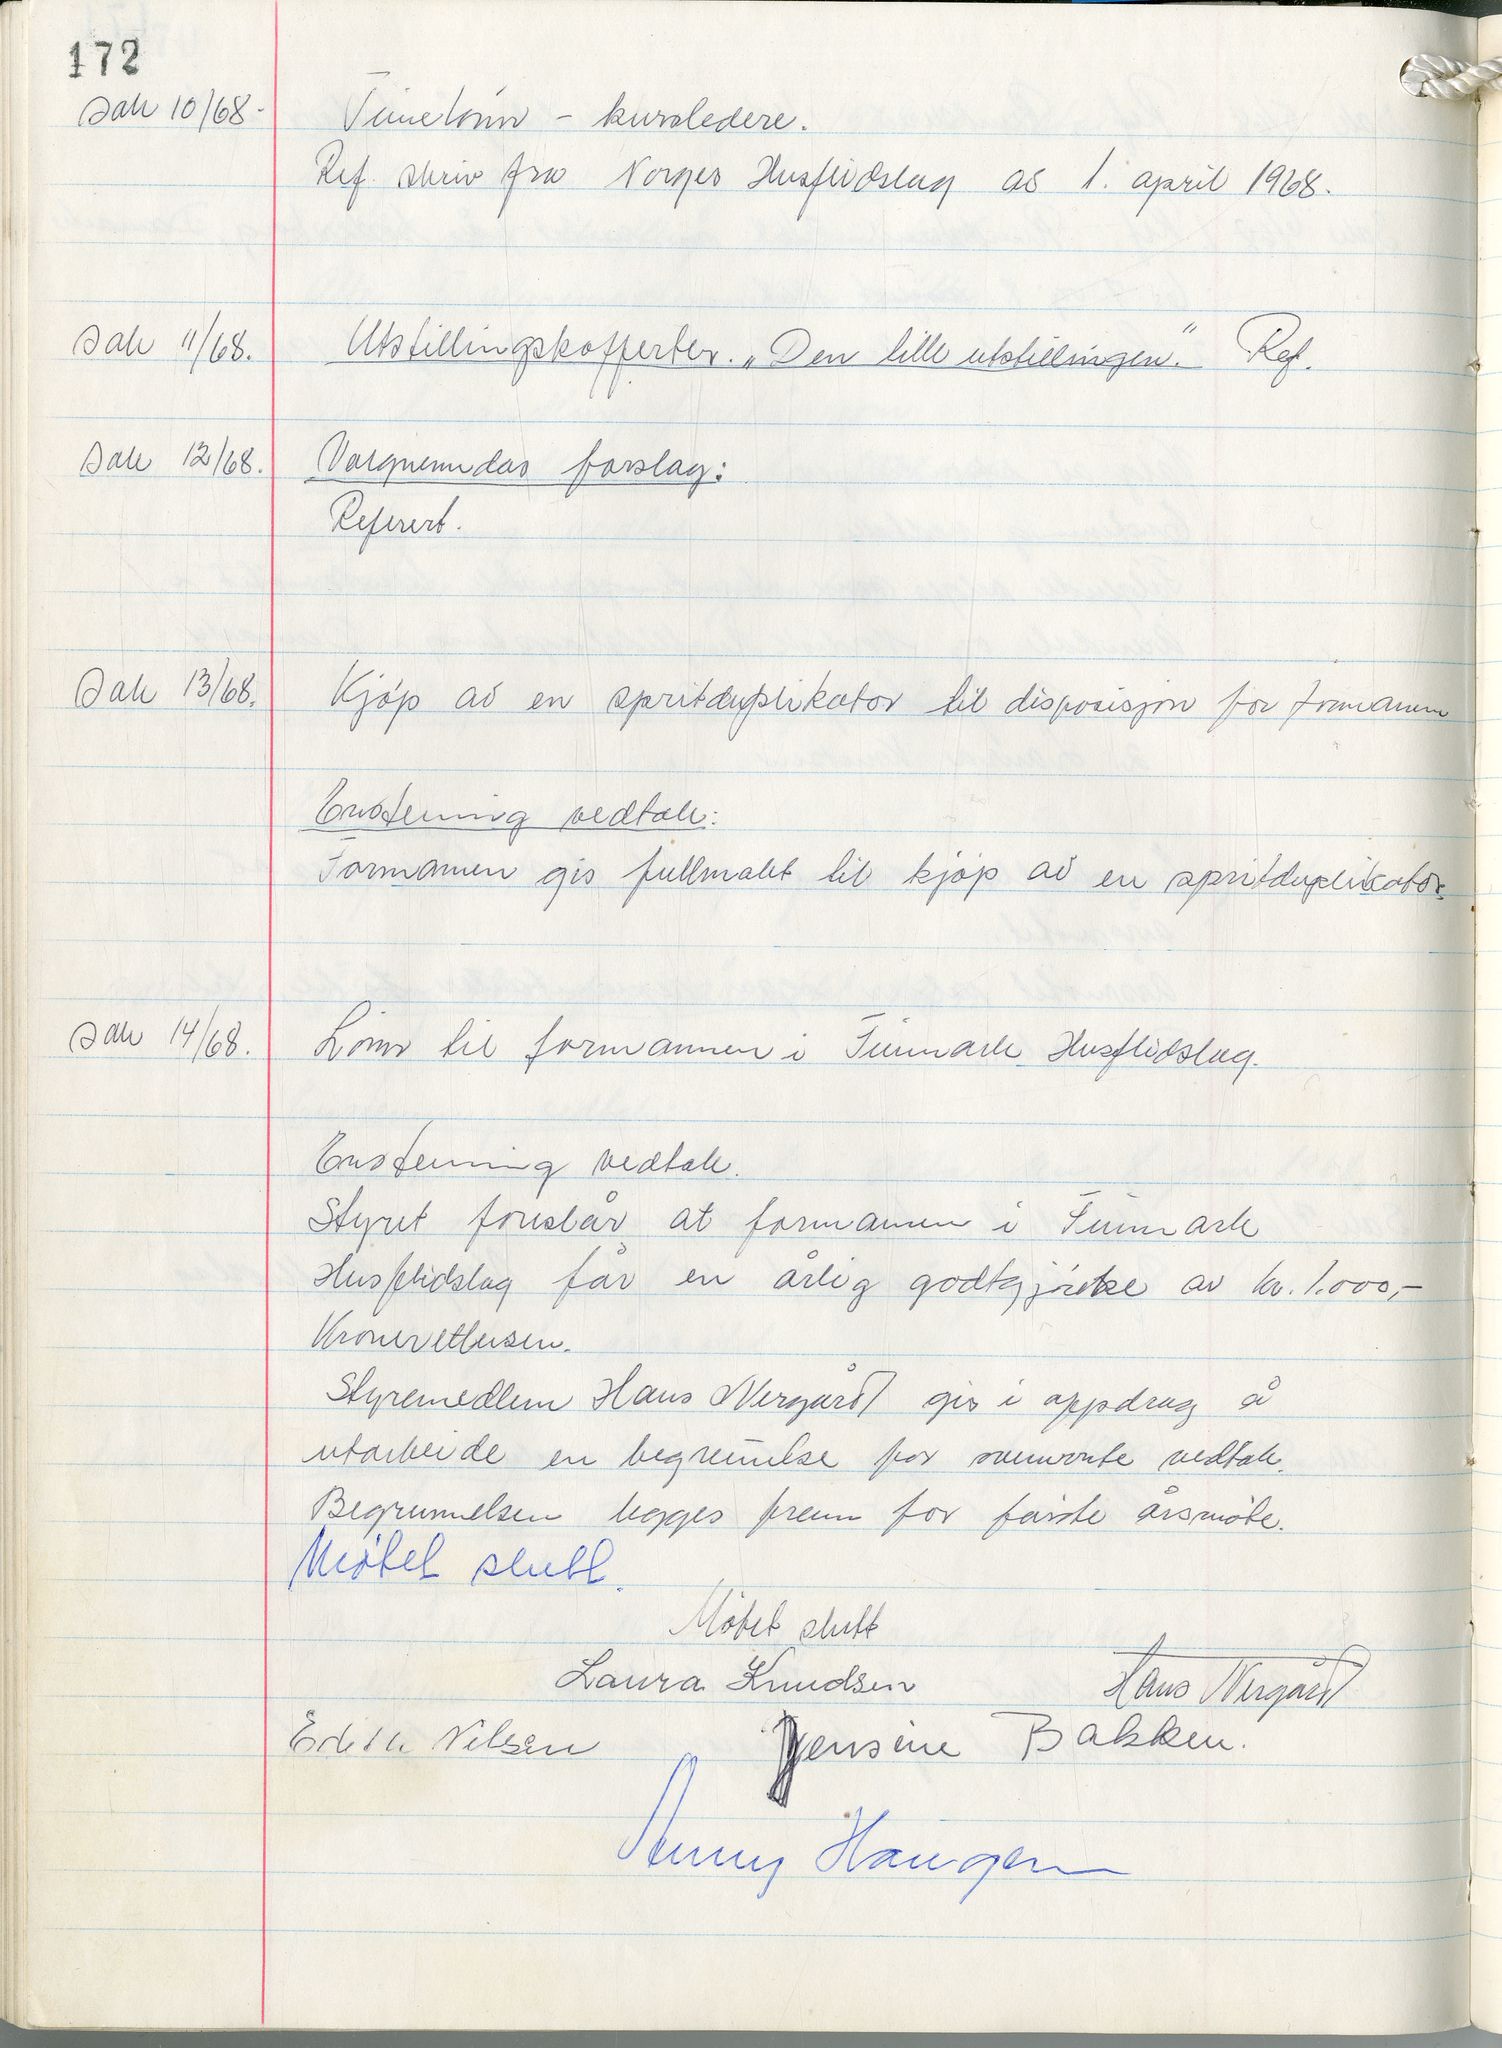 172
Sak 10/68. Timelönn - kursledere.
Ref. skriv fra Norges Husflidslag av 1. april 1968.
Sak 11/68. Utstillingskofferter. „Den lille utstillingen." Ref.
Sak 12/68. Valgnemndas forslag:
Referert.
Sak 13/68. Kjøp av en spritduplikator til disposisjon for formannen
Enstemmig vedtak:
Formannen gis fullmakt til kjøp av en spritduplikator.
Sak 14/68. Lönn til formannen i Finnmark Husflidslag.
Enstemmig vedtak.
Styret foreslår at formannen i Finnmark
Husflidslag får en årlig godtgjörelse av kr. 1.000,-
Kronerettusen.
Styremedlem Hans Nergård gis i oppdrag å
utarbeide en begrunnelse for ovennevnte vedtak.
Begrunnelsen legges frem for förste årsmöte.
Møtet slutt.
Mötet slutt
Laura Knudsen Hans Nergård
Edith Nilsen Jensine Bakken.
Jenny Haugen